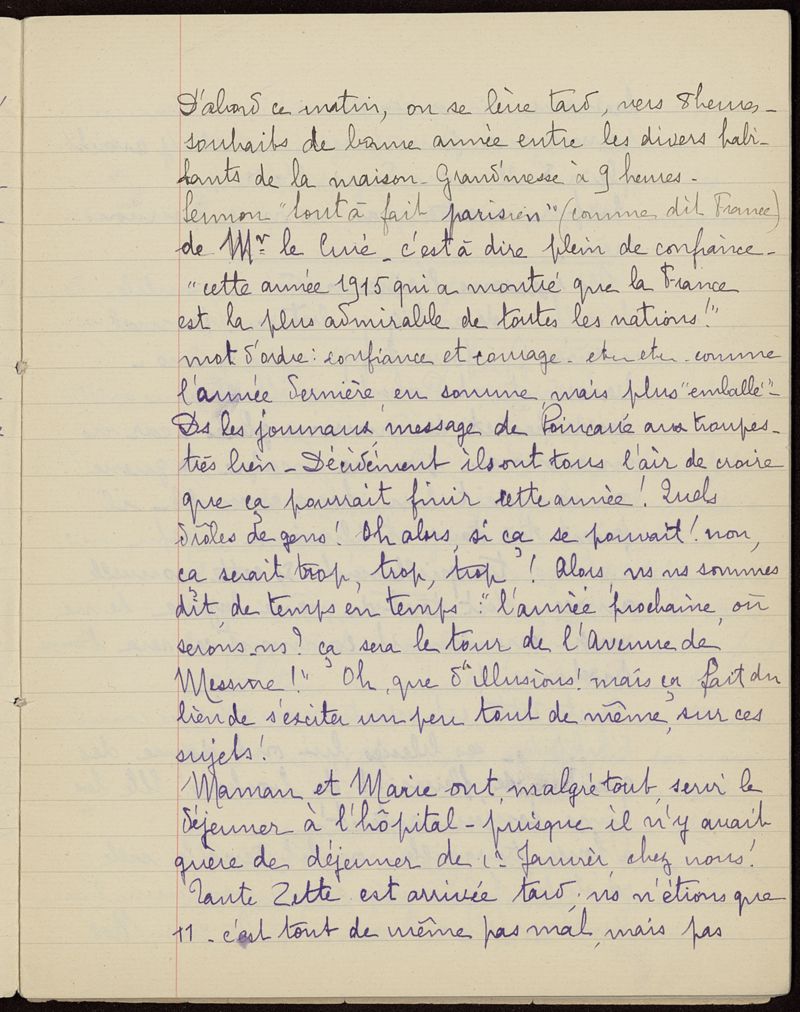 D'abord ce matin, on se lève tard, vers 8 heures -
souhaits de bonne année entre les divers habi-
tants de la maison - Grand'messe à 9 heures -
Sermon "tout à fait parisien" (comme dit France)
de Mr le Curé - c'est à dire plein de confiance -
"cette année 1915 qui a montré que la France
est la plus admirable de toutes les nations!"
mot d'ordre: confiance et courage - etc etc - comme
l'année dernière en somme, mais plus "emballé" -
Ds les journaux, message de Poincaré aux troupes -
très bien - Décidément ils ont tous l'air de croire
que ça pourrait finir cette année! Quels
drôles de gens! Oh alors, si ça se pouvait! non,
ça serait trop, trop, trop! Alors, ns ns sommes
dit, de temps en temps: "l'année prochaine, où
serons-ns? ça sera le tour de l'Avenue de
Messine!" Oh, que d'illusions! mais ça fait du
bien de s'exciter un peu tout de même, sur ces
sujets!
Maman et Marie ont, malgré tout, servi le
déjeuner à l'hôpital - puisque il n'y avait
guère de déjeuner de 1er Janvier, chez nous!
Tante Zette est arrivée tard, ns n'étions que
11 - c'est tout de même pas mal, mais pas